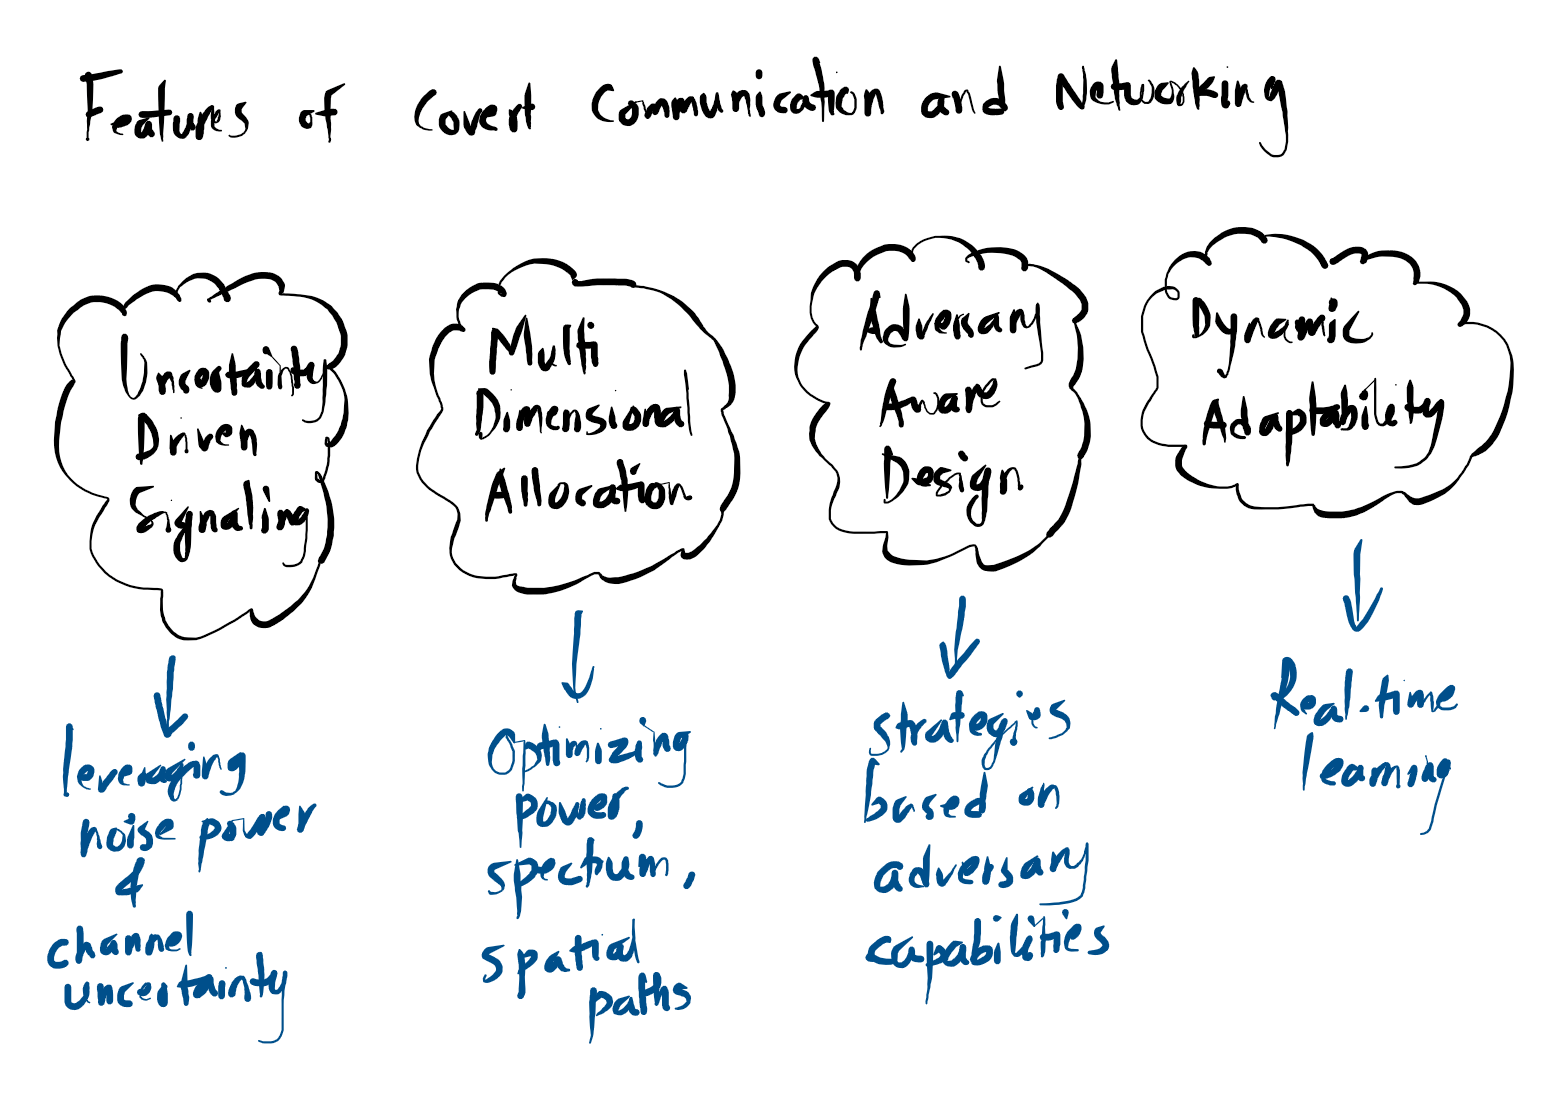 Features of Covert Communication and Networking
Uncertainty
Driven
Signaling
Multi
Dimensional
Allocation
Adversary
Aware
Design
Dynamic
Adaptability
leveraging
noise power
&
channel
uncertainty
Optimizing
power,
spectrum,
spatial
paths
strategies
based on
adversary
capabilities
Real-time
learning